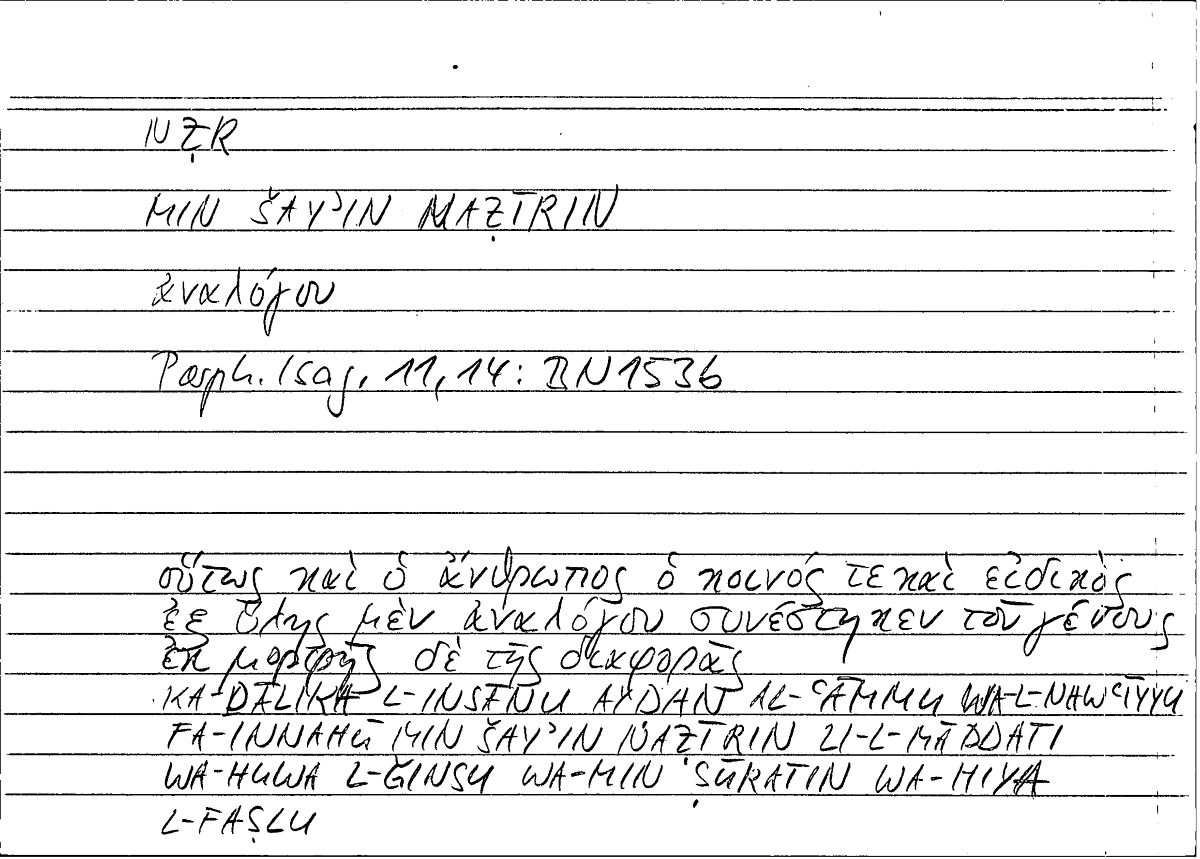 NẒR
MIN ŠAYʾIN NAẒĪRIN
ἀναλόγου
Porph. Isag. 11,14: BN1536
οὕτως καὶ ὁ ἄνθρωπος ὁ κοινός τε καὶ εἰδικὸς
ἐξ ὕλης μὲν ἀναλόγου συνέστηκεν τοῦ γένους
ἐκ μορφῆς δὲ τῆς διαφορᾶς
KA-ḎĀLIKA L-INSĀNU AYḌAN AL-ʿĀMMU WA-L-NAWʿĪYYU
FA-INNAHŪ MIN ŠAYʾIN NAẒĪRIN LI-L-MĀDDATI
WA-HUWA L-ǦINSU WA-MIN ṢŪRATIN WA-HIYA
L-FAṢLU